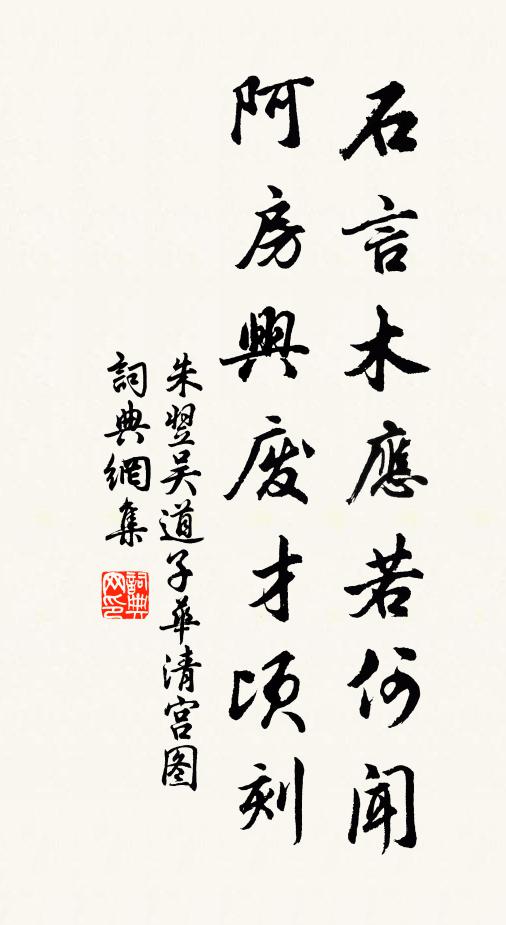 石言木應若何聞
阿房興废才頃刻
朱翌吴道子華清宫图
詞典網集
詞典网印